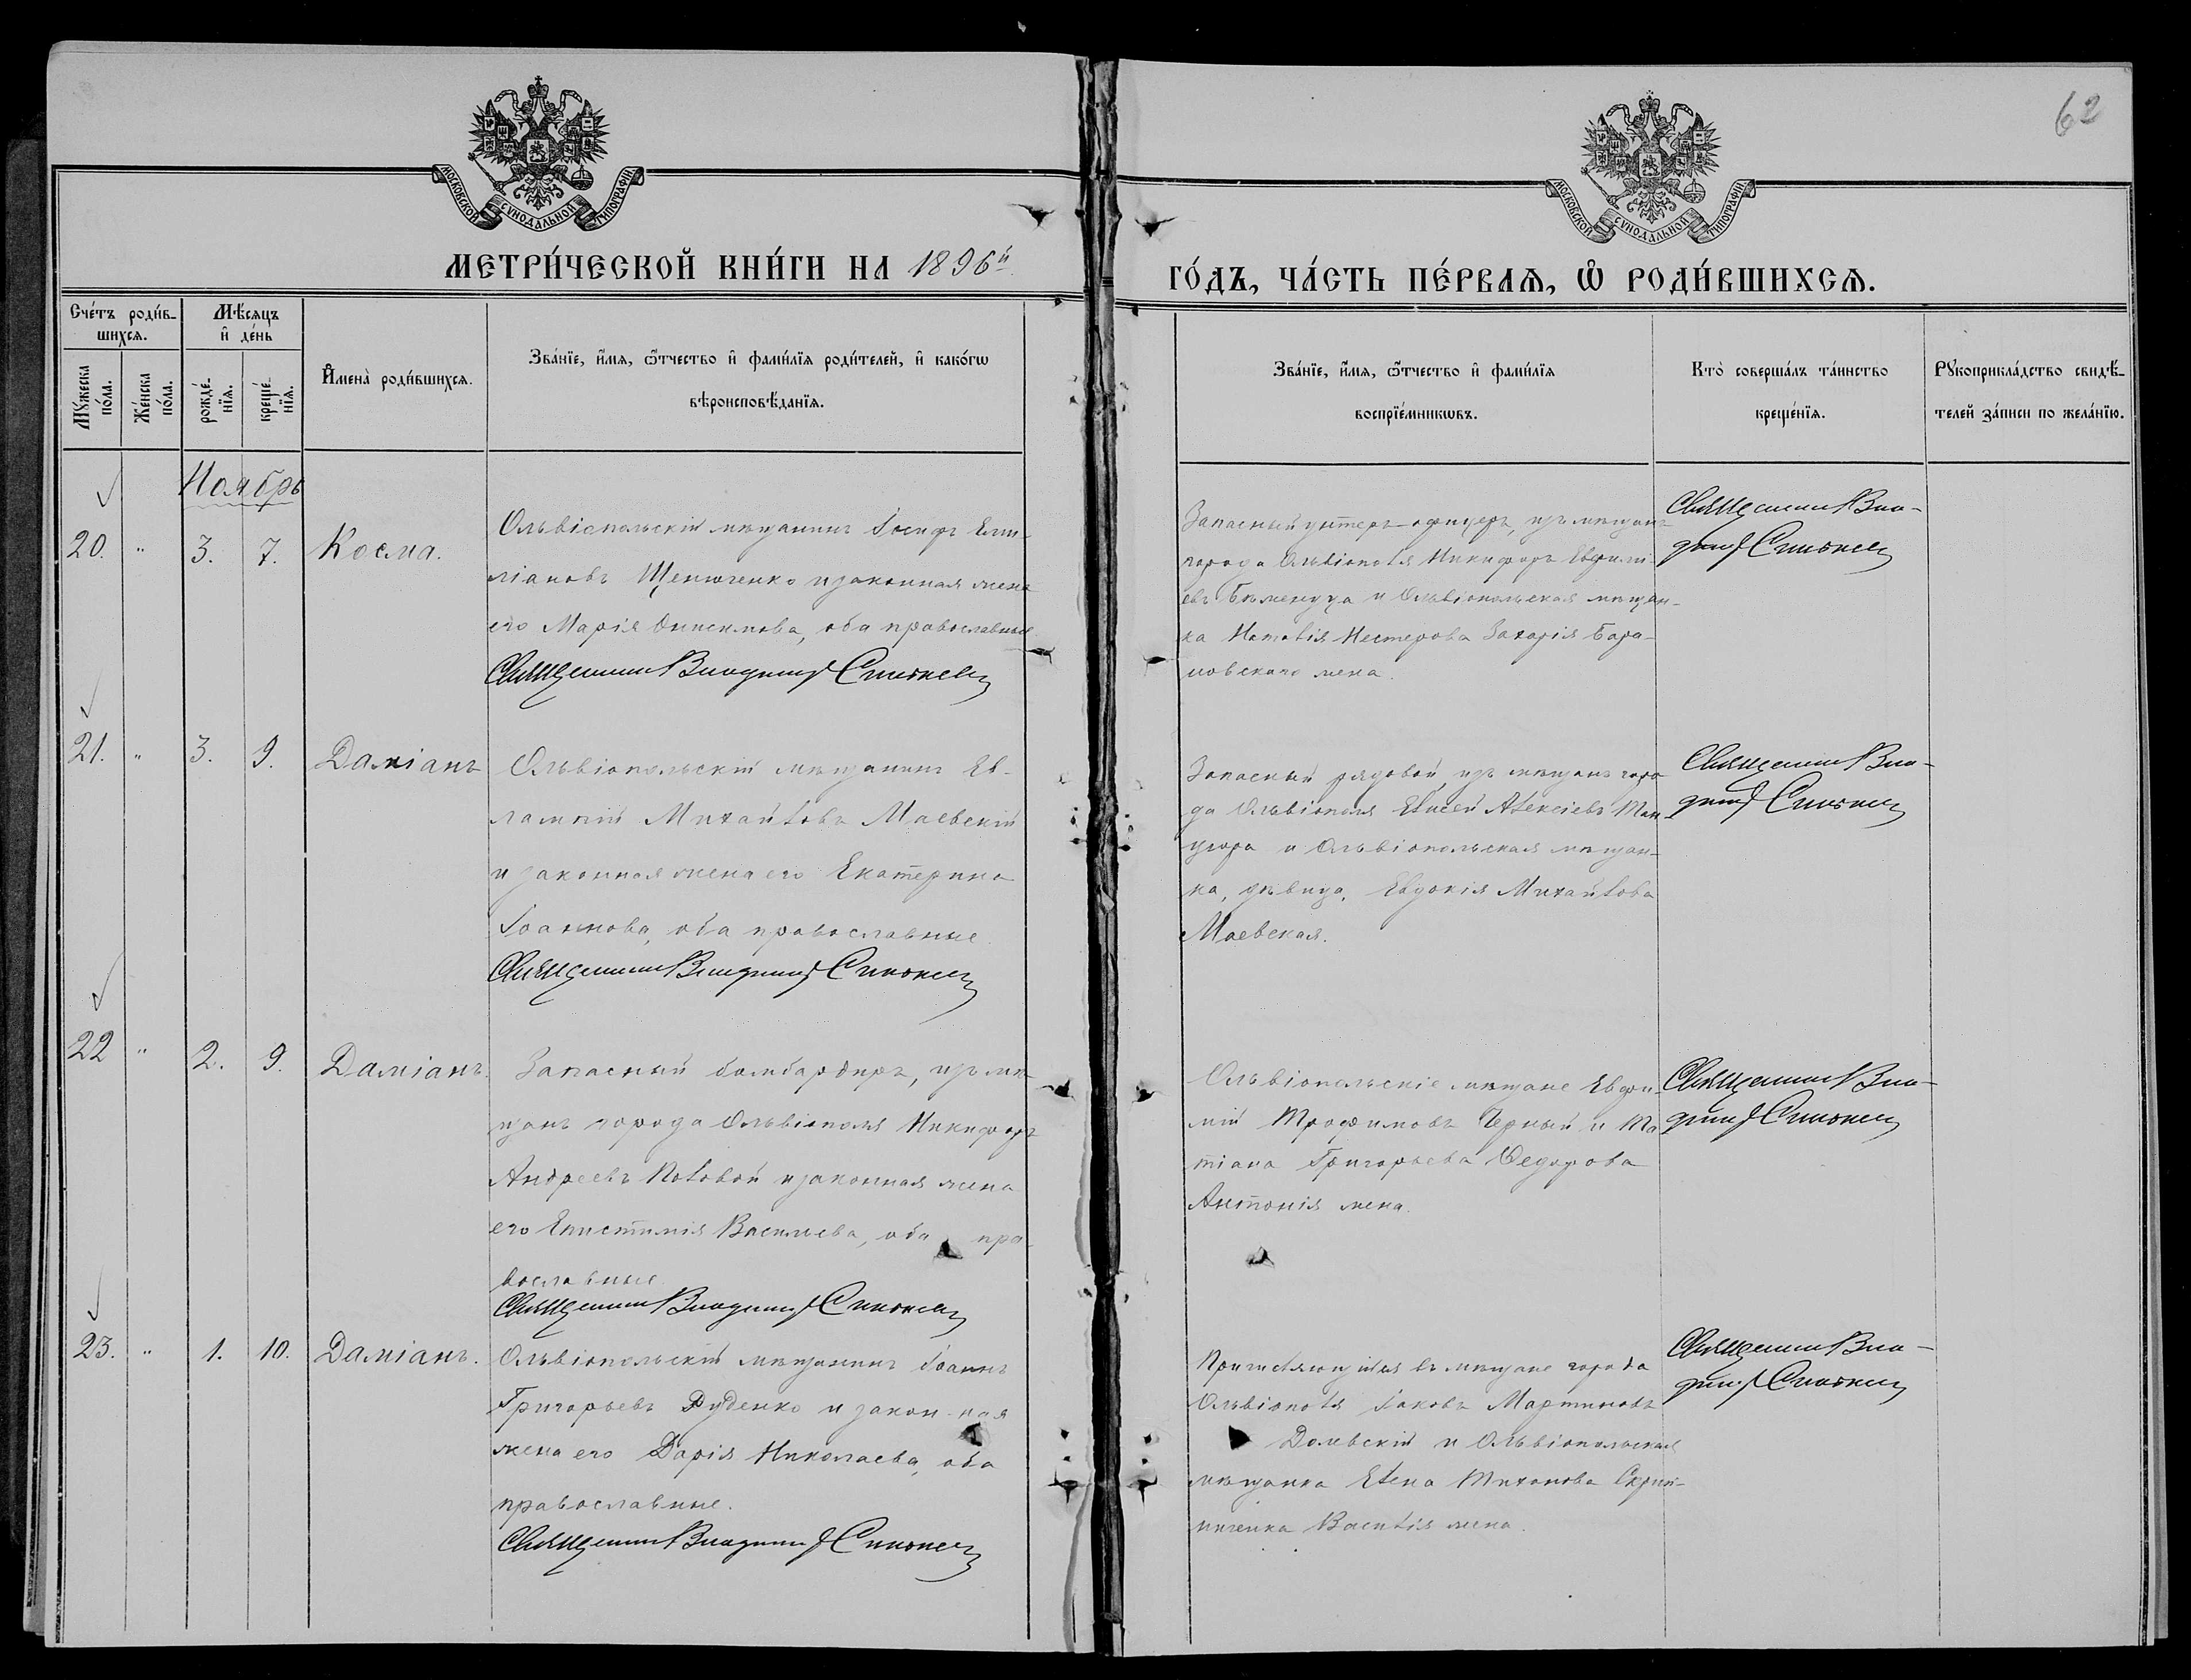 62
МОСКОВСКОЙ СУНОДАЛЬНОЙ ТИПОГРАФІИ
МОСКОВСКОЙ СУНОДАЛЬНОЙ ТИПОГРАФІИ
МЕТРИ́ЧЕСКОЙ КНИ́ГИ НА 1896й
ГО́ДЪ, ЧА́СТЬ ПЕ́РВАѦ, Ѡ РОДИ́ВШИХСѦ.
Счéтъ роди́в-
шихсѧ.
Мꙋ́жеска
по́ла.
Же́нска
по́ла.
Мѣ́сѧцъ
и҆ де́нь
рожде́-
нїѧ.
креще́-
нїѧ.
И҆мена̀ роди́вшихсѧ.
Зва́нїе, и҆́мѧ, ѻ҆́тчество и҆ фами́лїѧ роди́телей, и҆ како́гѡ
вѣроисповѣ́данїѧ.
Зва́нїе, и҆́мѧ, ѻ҆́тчество и҆ фами́лїѧ
воспрїе́мникѡвъ.
Кто̀ соверша́лъ та́инство
креще́нїѧ.
Рꙋкоприкла́дство свидѣ́-
телей за́писи по жела́нїю.
Ноябрь
20. " 3. 7. Косма.
Ольвіопольскій мѣщанинъ Іосифъ Еми-
ліановъ Щенюченко и законная жена
его Марія Онисимова, оба православные
Священникъ Владиміръ
Запасный унтеръ-офицеръ, изъ мѣщанъ
города Ольвіополя Никифоръ Евфимі-
евъ и Ольвіопольская мѣщан-
ка Наталія Нестерова Захарія Бара-
новскаго жена.
Священникъ Вла-
диміръ
21. " 3. 9. Даміанъ
Ольвіопольскій мѣщанинъ Ев-
лампій Михайловъ Маевскій
и законная жена его Екатерина
Іоаннова, оба православные
Священникъ Владиміръ
Запасный рядовой, изъ мѣщанъ горо-
да Ольвіополя Елисей Алексіевъ Ман-
и Ольвіопольская мѣщан-
ка, дѣвица, Евдокія Михайлова
Маевская.
Священникъ Вла-
диміръ
22 " 2. 9. Даміанъ.
Запасный бомбардиръ, изъ мѣ-
щанъ города Ольвіополя Никифоръ
Андреевъ Половой и законная жена
его Епистимія Васильева, оба пра-
вославные
Священникъ Владиміръ
Ольвіопольскіе мѣщане Евфи-
мій Трофимовъ Черный и Та-
тіана Григорьева Федорова
Антонія жена.
Священникъ Вла-
диміръ
23. " 1. 10. Даміанъ.
Ольвіопольскій мѣщанинъ Іоаннъ
Григорьевъ Руденко и законная
жена его Дарія Николаева, оба
православные.
Священникъ Владиміръ
Причисляющійся въ мѣщане города
Ольвіополя Іаковъ Мартиновъ
Долевскій и Ольвіопольская
мѣщанка Елена Тихонова Скрип-
ниченка Василія жена.
Священникъ Вла-
диміръ